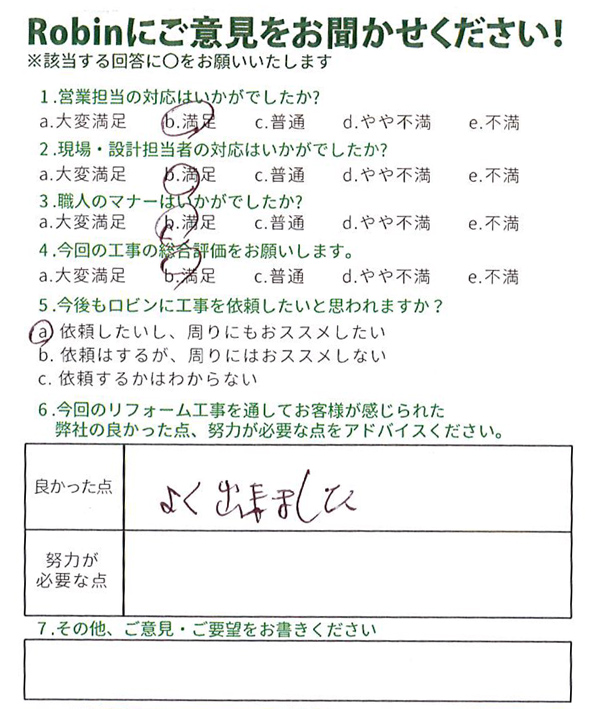 Robinにご意見をお聞かせください!
※該当する回答に〇をお願いいたします
1.営業担当の対応はいかがでしたか?
a.大変満足 b.満足 c.普通 d.やや不満 e.不満
2.現場・設計担当者の対応はいかがでしたか?
a.大変満足 b.満足 c.普通 d.やや不満 e.不満
3.職人のマナーはいかがでしたか?
a.大変満足 b.満足 c.普通 d.やや不満 e.不満
4.今回の工事の総合評価をお願いします。
a.大変満足 b.満足 c.普通 d.やや不満 e.不満
5.今後もロビンに工事を依頼したいと思われますか？
a 依頼したいし、周りにもおススメしたい
b. 依頼はするが、周りにはおススメしない
c. 依頼するかはわからない
6.今回のリフォーム工事を通してお客様が感じられた
弊社の良かった点、努力が必要な点をアドバイスください。
良かった点 よく出来ました
努力が
必要な点
7.その他、ご意見・ご要望をお書きください